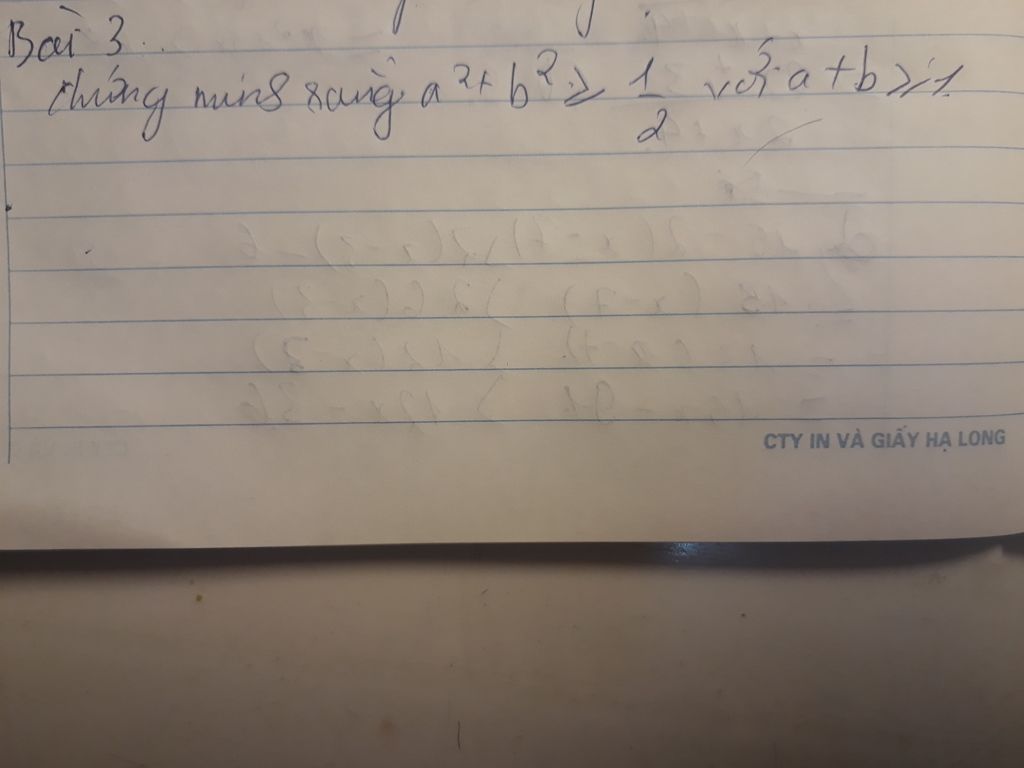 Bài 3
chứng minh rằng a² + b² ≥ 1/2 với a + b ≥ 1
CTY IN VÀ GIẤY HẠ LONG